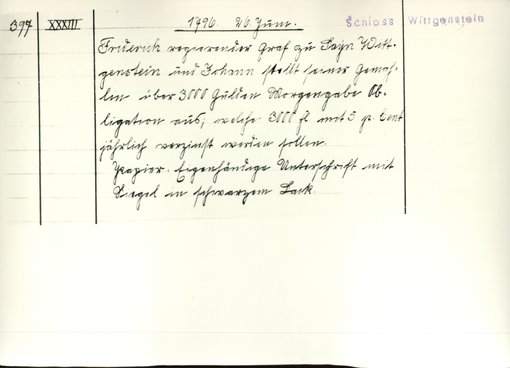 397 XXXIII 1796. 26. Juni. Schloss Wittgenstein
Friderich regierender Graf zu Sayn Witt-
genstein und Johann stellt seiner Gemah-
lin über 3000 Gulden Morgengabe Ob-
ligation aus, welche 3000 fl mit 5 p. Cent
jährlich verzinst werden sollen.
Papier. Eigenhändige Unterschrift mit
Siegel in schwarzem Lack.